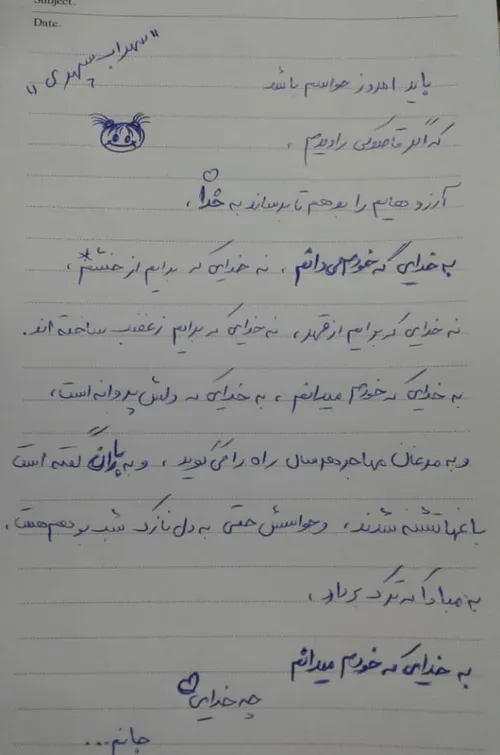 Subject:
Date:
"سهراب سپهری"
باید امروز حواسم باشد
که اگر قاصدکی را دیدم ،
آرزو هایم را بدهم تا برساند به خدا ،
به خدایی که خودم می دانم ، نه خدایی که برایم از خشم ،
نه خدایی که برایم از قهر ، نه خدایی که برایم ز غضب ساخته اند .
به خدایی که خودم میدانم ، به خدایی که دلش پروانه است ،
و به مرغان مهاجر هر سال راه را می گوید ، و به باران گفته است
باغها تشنه شدند ، و حواسش حتی به دل نازک شب بو هم هست ،
که مبادا که ترک بردارد ،
به خدایی که خودم میدانم
چه خدایی
جانم ...